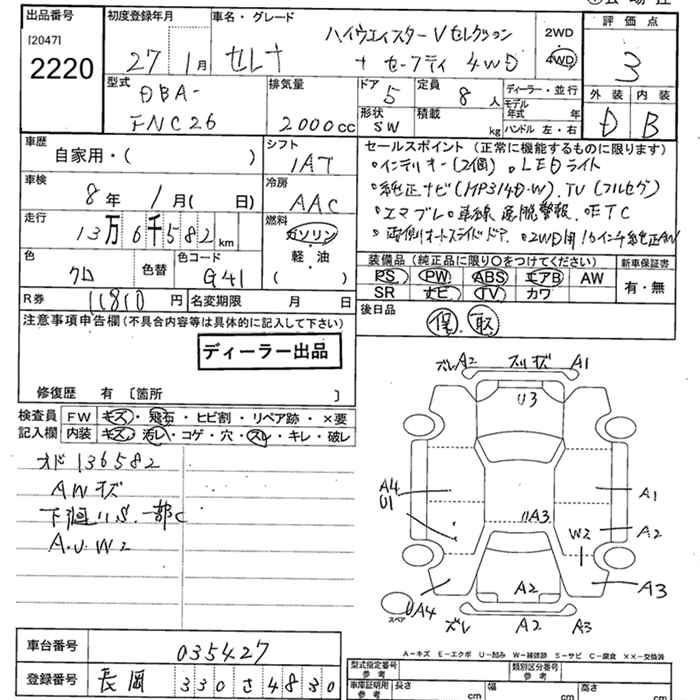 出品番号 初度登録年月 車名・グレード 評価点
[2047]
2220
27年 1月 セレナ ハイウェイスターVセレクション
+セーフティ 4WD
2WD
4WD
3
型式 排気量 ドア 定員 ディーラー・並行 外装 内装
DBA-
FNC26 2000cc
5 8人
モデル年式 年
形状 積載
SW kg ハンドル 左・右
D B
車歴 シフト
自家用・( )
IAT
車検 冷房
8年 1月( 日)
AAC
走行 燃料
13万6千582km
ガソリン・軽・油
( )
色 色替 色コード
クロ G41
R券 11810円 名変期限 月 日
セールスポイント(正常に機能するものに限ります)
・インテリキー(2個)。LEDライト
・純正ナビ(MP314D-W).TV(フルセグ)
・エマブレ。車線逸脱警報.ETC
・両側オートスライドドア.・2WD用16インチ純正AW
装備品(純正品に限り○をつけてください) 新車保証書
PS PW ABS エアB AW 有・無
SR ナビ TV カワ
後日品
保.取
注意事項申告欄(不具合内容等は具体的に記入して下さい)
ディーラー出品
修復歴 有 〔箇所 〕
検査員記入欄
FW キズ・飛石・ヒビ割・リペア跡・×要
内装 キズ・汚レ・コゲ・穴・スレ・キレ・破レ
オド136582
AWキズ
下廻りS.一部C
A.U.W2
ズレA2 スリキズ A1
U3
A4
U1
A1
A3
A2
W2
UA4
A2
A3
スペア
ズレ A2 A3
A-キズ E-エクボ U-凹み W-補修跡 S-サビ C-腐食 ××-交換済
車台番号 035427
登録番号 長岡 330さ4830
型式指定番号 参考 類別区分番号 参考
車庫証明用 参考 長さ cm 幅 cm 高さ cm